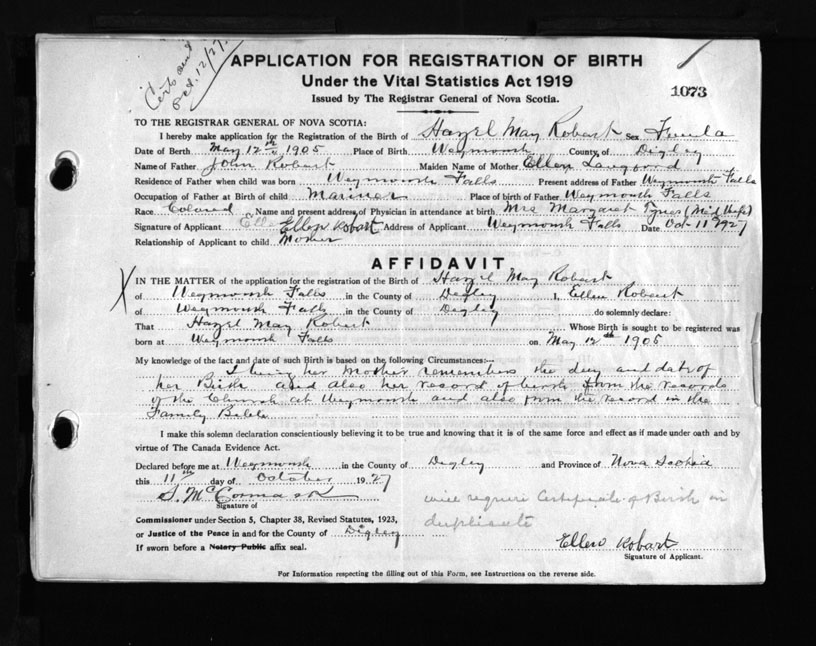 Cert sent
Oct. 12/27.
APPLICATION FOR REGISTRATION OF BIRTH
Under the Vital Statistics Act 1919
Issued by The Registrar General of Nova Scotia.
1073
TO THE REGISTRAR GENERAL OF NOVA SCOTIA:
I hereby make application for the Registration of the Birth of Hazel May Robart Sex Female
Date of Birth May 12th 1905 Place of Birth Weymouth County of Digby
Name of Father John Robart Maiden Name of Mother Ellen Langford
Residence of Father when child was born Weymouth Falls Present address of Father Weymouth Falls
Occupation of Father at Birth of child Mariner Place of birth of Father Weymouth Falls
Race Colored Name and present address of Physician in attendance at birth Mrs Margaret Tynes (Mid Wife)
Signature of Applicant Ellen Robart Address of Applicant Weymouth Falls Date Oct 11 1927
Relationship of Applicant to child Mother
AFFIDAVIT
IN THE MATTER of the application for the registration of the Birth of Hazel May Robart
of Weymouth Falls in the County of Digby I, Ellen Robart
of Weymouth Falls in the County of Digby do solemnly declare:
That Hazel May Robart Whose Birth is sought to be registered was
born at Weymouth Falls on May 12th 1905
My knowledge of the fact and date of such Birth is based on the following Circumstances:—
I being her Mother remembers the day and date of
her Birth and also her record of birth from the records
of the Church at Weymouth and also from the record in the
Family Bible
I make this solemn declaration conscientiously believing it to be true and knowing that it is of the same force and effect as if made under oath and by
virtue of The Canada Evidence Act.
Declared before me at Weymouth in the County of Digby and Province of Nova Scotia
this 11th day of October 1927
S. McCormack
Signature of
will require Certificate of Birth in
duplicate
Commissioner under Section 5, Chapter 38, Revised Statutes, 1923,
or Justice of the Peace in and for the County of Digby
If sworn before a Notary Public affix seal.
Ellen Robart
Signature of Applicant.
For Information respecting the filling out of this Form, see Instructions on the reverse side.